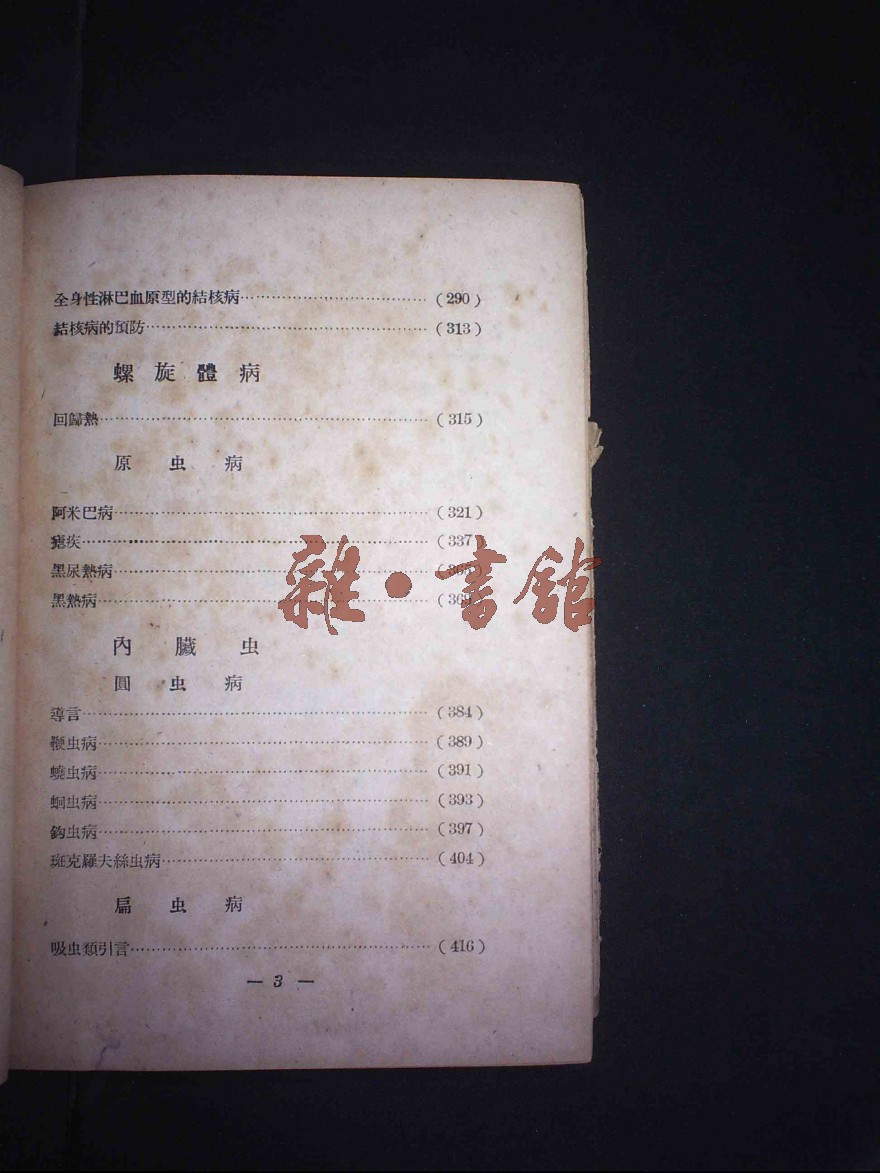 全身性淋巴血原型的結核病……………………………(290)
結核病的預防……………………………(313)
螺旋體病
回歸熱……………………………(315)
原虫病
阿米巴病……………………………(321)
瘧疾……………………………(337)
黑尿熱病……………………………(365)
黑熱病……………………………(369)
雜·書舘
內臟虫
圓虫病
導言……………………………(384)
鞭虫病……………………………(389)
蟯虫病……………………………(391)
蛔虫病……………………………(393)
鈎虫病……………………………(397)
斑克羅夫絲虫病……………………………(404)
扁虫病
吸虫類引言……………………………(416)
— 3 —